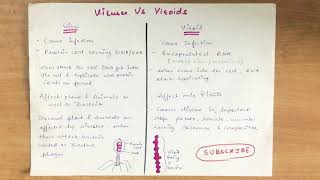 Viruses Vs Viroids
Virus
- Cause Infection
- Protein coat covering DNA/RNA
when attack the cell DNA gets into
the cell & replicate and protein
coats are formed
Affect plants & Animals as
well as Bacteria
Several plant & animals are
affected by viruses. when
these attack bacteria
called as Bacterio
phages
Protein
coat
Viroid
Cause Infection
- Encapsulated RNA
when enters into the cell, RNA
start replicating
Affect only Plants
Causes disease in Important
crops potato, tomato, cucumber
SUBSCRIBE
Viroid